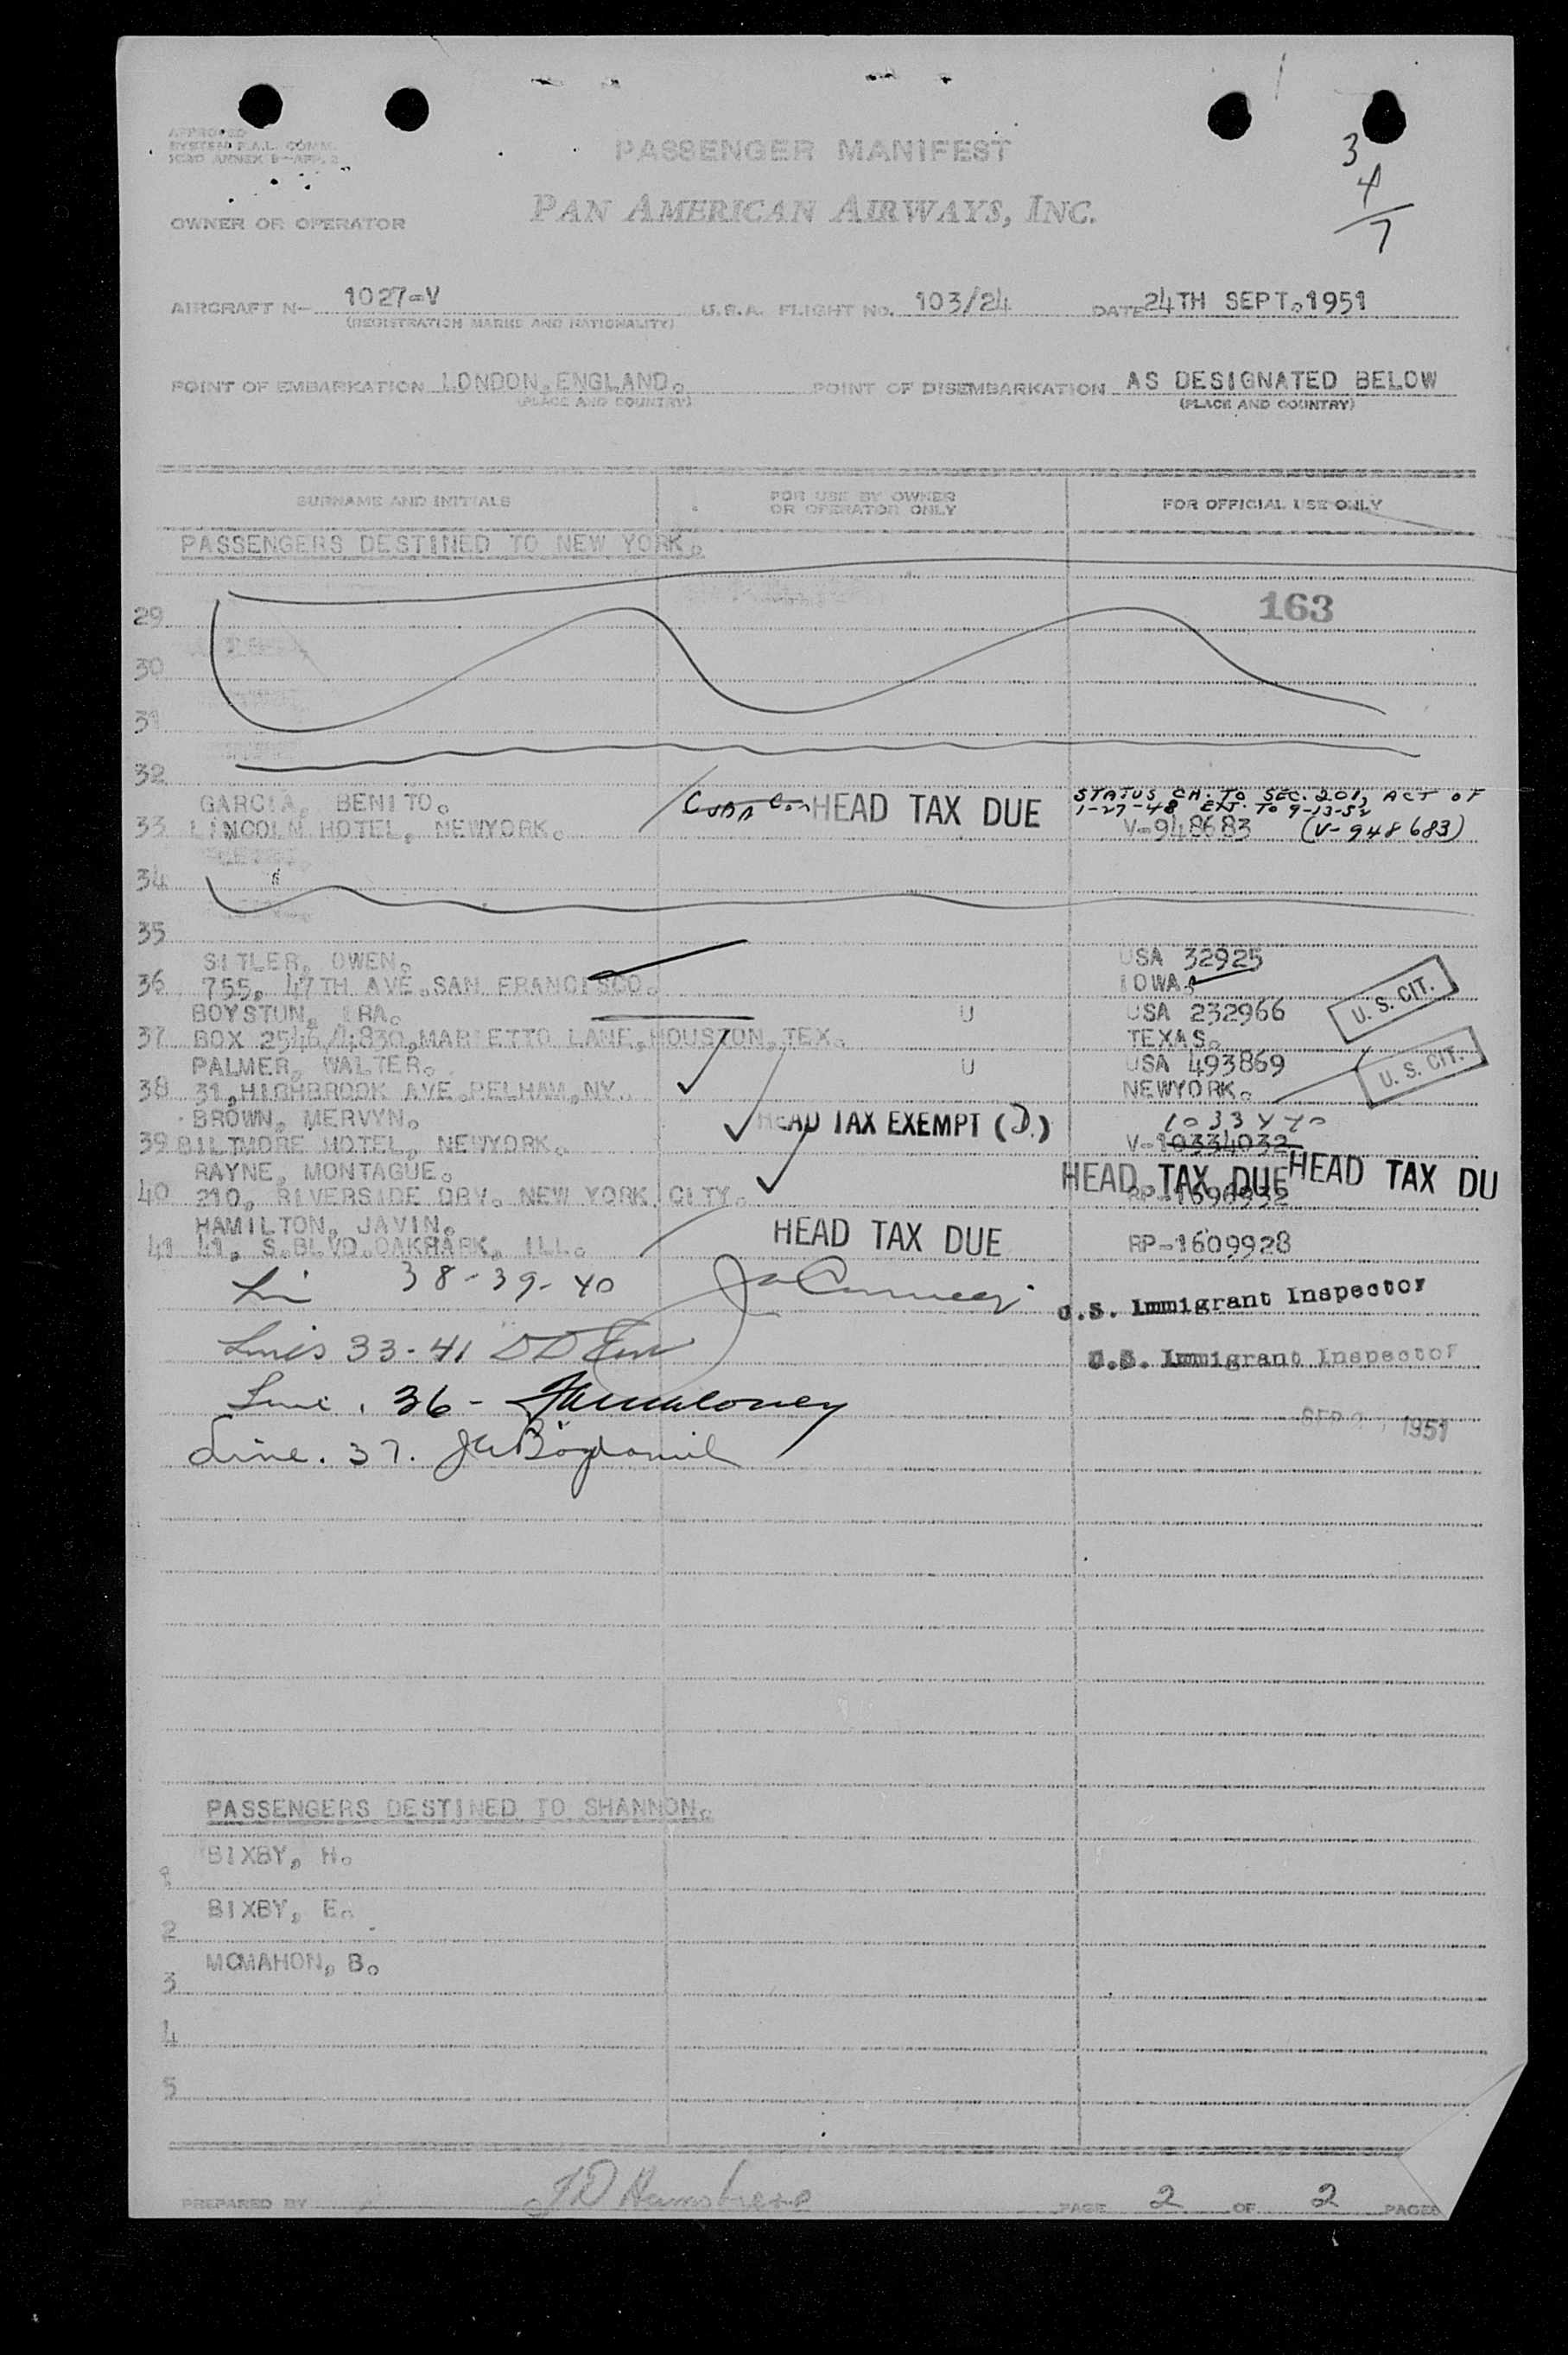 APPROVED
SYSTEM F.A.L. COMM.
ICAO ANNEX 9-APP. 2
PASSENGER MANIFEST
3
4
7
OWNER OR OPERATOR
PAN AMERICAN AIRWAYS, INC.
AIRCRAFT N- 1027-V U.S.A. FLIGHT NO. 103/24 DATE 24TH SEPT. 1951
(REGISTRATION MARKS AND NATIONALITY)
POINT OF EMBARKATION LONDON, ENGLAND. POINT OF DISEMBARKATION AS DESIGNATED BELOW
(PLACE AND COUNTRY) (PLACE AND COUNTRY)
SURNAME AND INITIALS FOR USE BY OWNER OR OPERATOR ONLY FOR OFFICIAL USE ONLY
PASSENGERS DESTINED TO NEW YORK.
163
29
30
31
32
GARCIA, BENITO. HEAD TAX DUE STATUS CH. TO SEC. 201, ACT OF
1-27-48 EXT. TO 9-13-52
33 LINCOLN HOTEL, NEWYORK. V-948683 (V-948683)
34
35
SITLER, OWEN. USA 32925
36 755, 47TH AVE.SAN FRANCISCO. IOWA.
BOYSTUN, IRA. U USA 232966 U. S. CIT.
37 BOX 2546/4830,MARIETTO LANE,HOUSTON,TEX. TEXAS.
PALMER, WALTER. U USA 493869 U. S. CIT.
38 31,HIGHBROOK AVE.PELHAM,NY. NEWYORK.
BROWN, MERVYN. HEAD TAX EXEMPT (D.) 1033440
39 BILTMORE HOTEL, NEWYORK. V-10334032
RAYNE, MONTAGUE. HEAD TAX DUE HEAD TAX DU
40 210, RIVERSIDE DRV. NEW YORK CITY.
HAMILTON, JAVIN. HEAD TAX DUE
41 41, S.BLVD.OAKPARK, ILL. RP-1609928
38-39-40 U.S. Immigrant Inspector
Lines 33-41 U.S. Immigrant Inspector
Line. 36-
SEP 1951
Line. 37.
PASSENGERS DESTINED TO SHANNON.
BIXBY, H.
1
BIXBY, E.
2
MCMAHON, B.
3
4
5
PREPARED BY PAGE 2 OF 2 PAGES